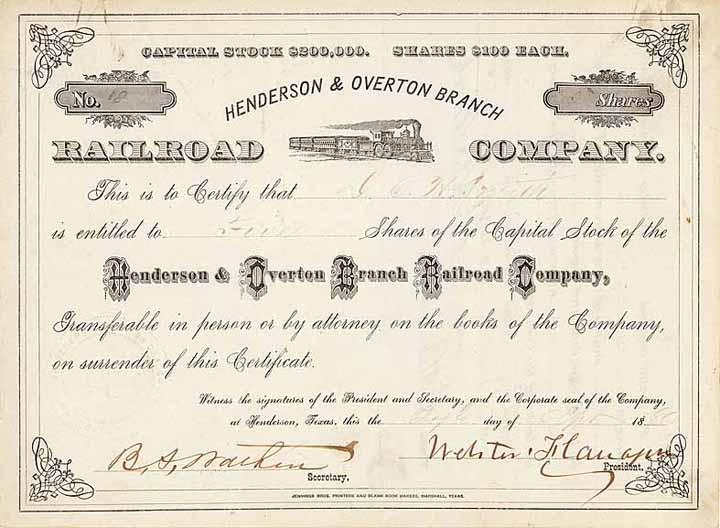 CAPITAL STOCK $200,000. SHARES $100 EACH.
No. 18
Shares
HENDERSON & OVERTON BRANCH
RAILROAD COMPANY.
This is to Certify that
is entitled to Shares of the Capital Stock of the
Henderson & Overton Branch Railroad Company,
Transferable in person or by attorney on the books of the Company,
on surrender of this Certificate.
Witness the signatures of the President and Secretary, and the Corporate seal of the Company,
at Henderson, Texas, this the day of 18
Webster Flanagan
Secretary.
President.
JENNINGS BROS. PRINTERS AND BLANK BOOK MAKERS, MARSHALL, TEXAS.